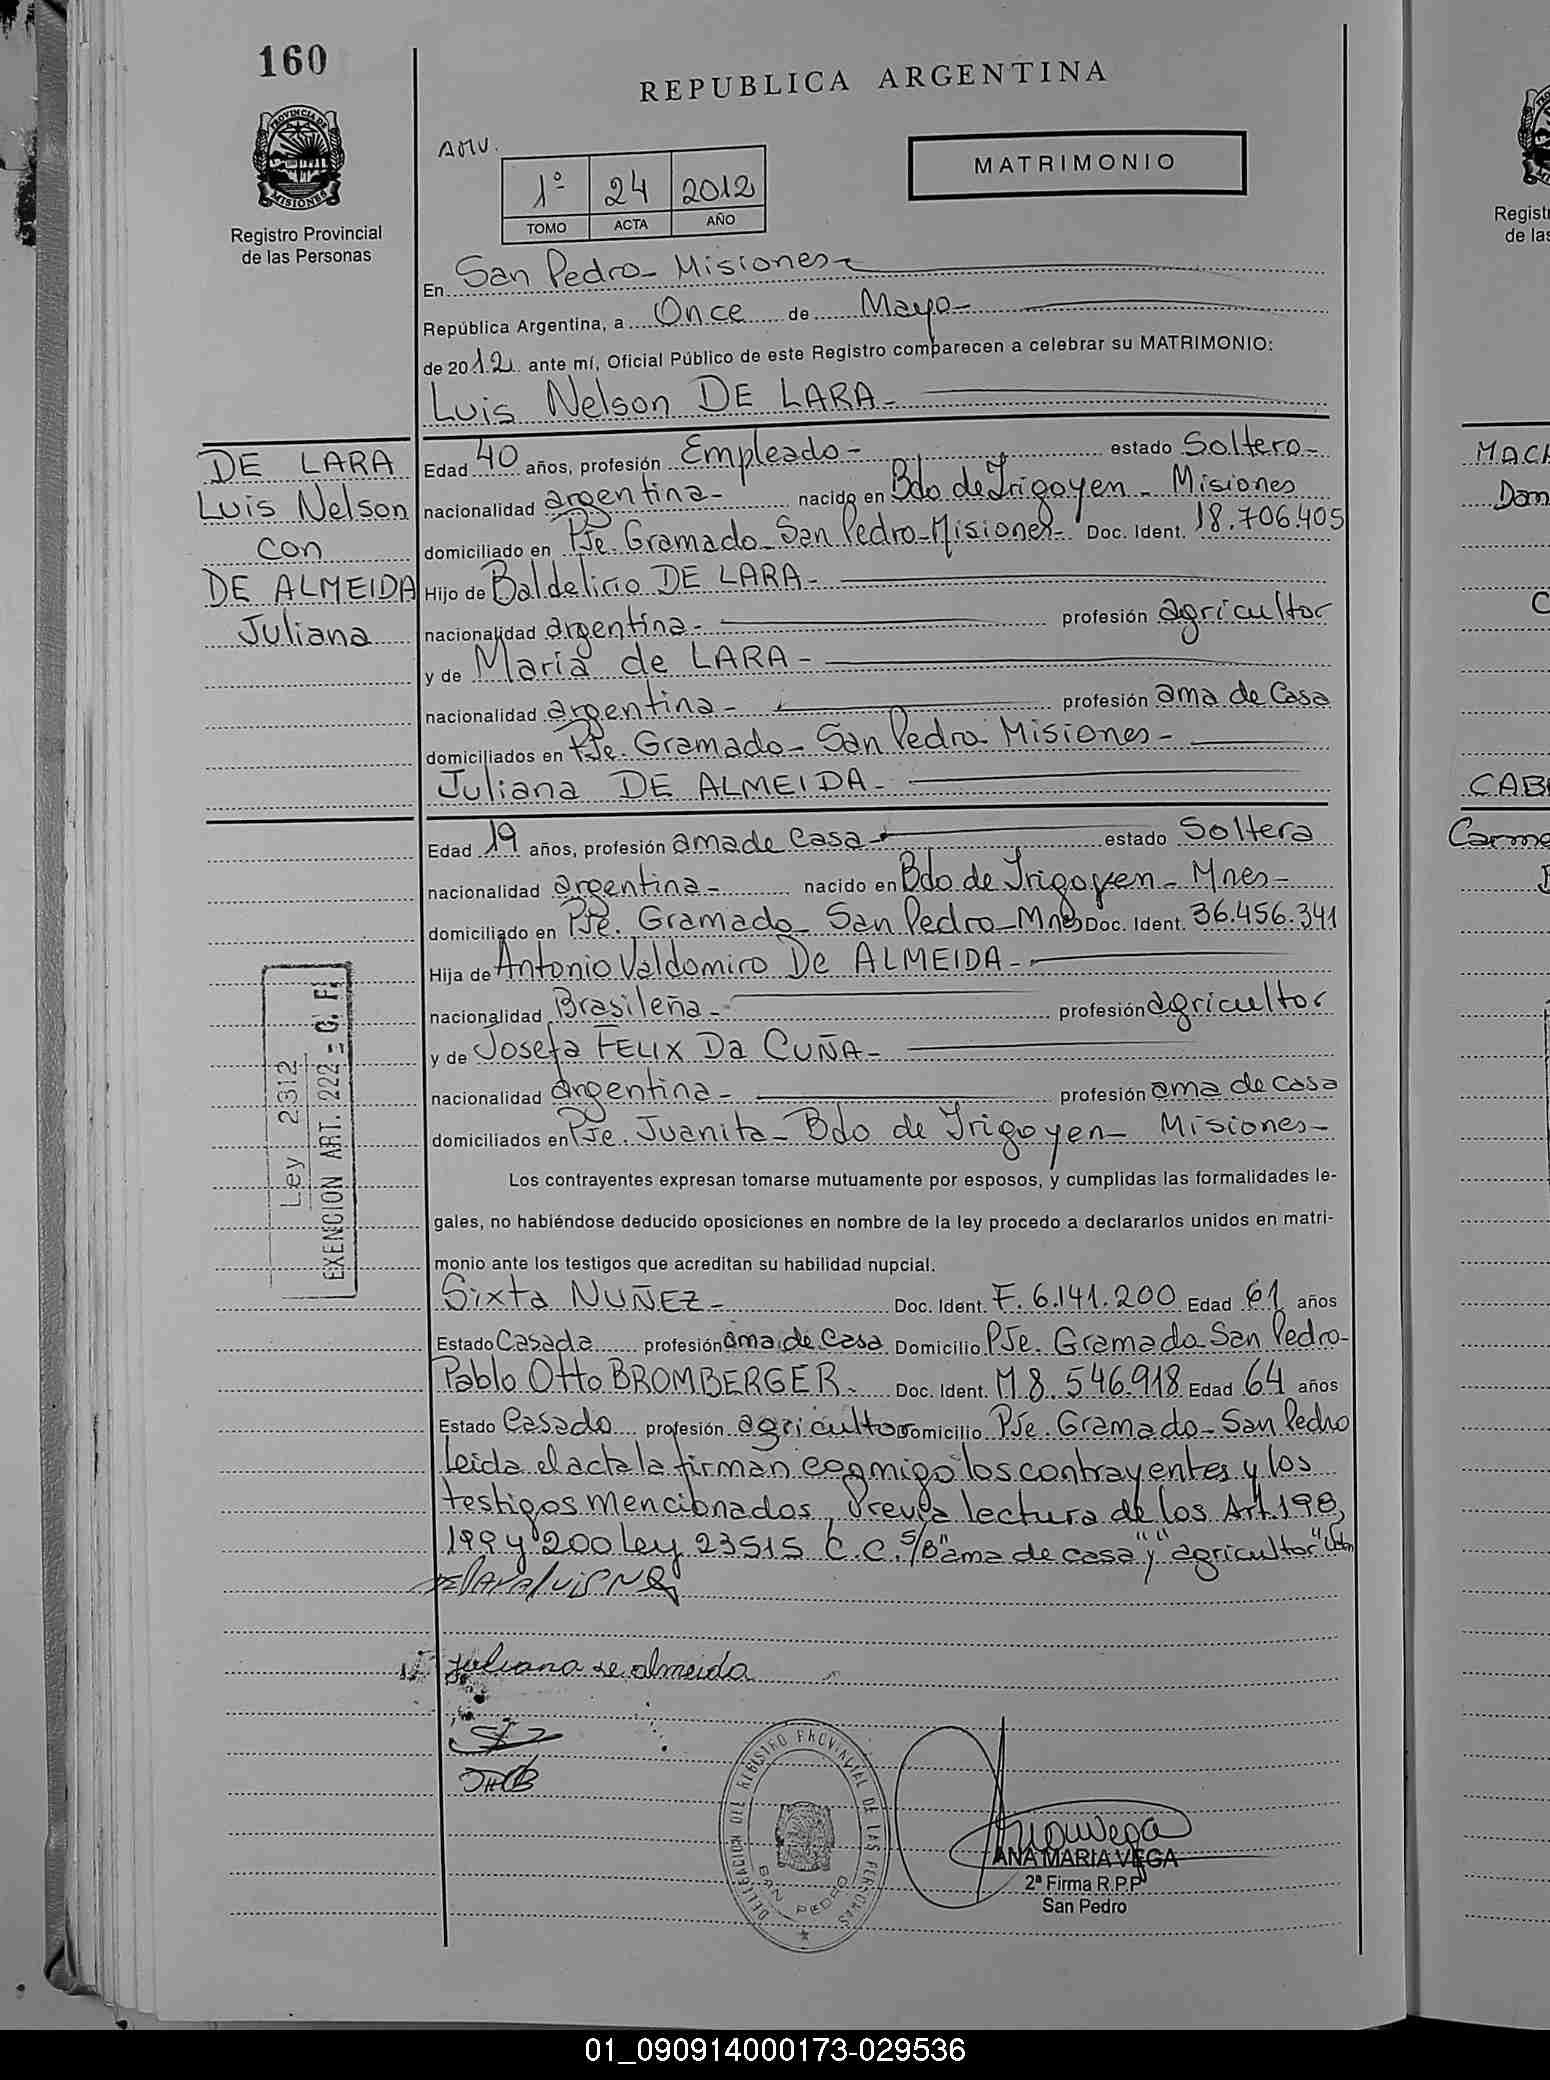 160
REPUBLICA ARGENTINA
PROVINCIA DE
MISIONES
Registro Provincial
de las Personas
AMV.
MATRIMONIO
1º 24 2012
TOMO ACTA AÑO
En San Pedro - Misiones -
República Argentina, a Once de Mayo -
de 2012 ante mí, Oficial Público de este Registro comparecen a celebrar su MATRIMONIO:
Luis Nelson DE LARA -
DE LARA
Luis Nelson
con
DE ALMEIDA
Juliana
Edad 40 años, profesión Empleado - estado Soltero -
nacionalidad argentina - nacido en Bdo de Irigoyen - Misiones
domiciliado en Pje. Gramado - San Pedro - Misiones - Doc. Ident. 18.706.405
Hijo de Baldelirio DE LARA -
nacionalidad argentina - profesión agricultor
y de Maria de LARA -
nacionalidad argentina - profesión ama de Casa
domiciliados en Pje. Gramado - San Pedro - Misiones -
Juliana DE ALMEIDA -
Edad 19 años, profesión ama de Casa - estado Soltera
nacionalidad argentina - nacido en Bdo de Irigoyen - Mnes -
domiciliado en Pje. Gramado - San Pedro - Mnes Doc. Ident. 36.456.341
Hija de Antonio Valdomiro De ALMEIDA -
nacionalidad Brasileña - profesión agricultor
y de Josefa FELIX DA CUÑA -
nacionalidad argentina - profesión ama de casa
domiciliados en Pje. Juanita - Bdo de Irigoyen - Misiones -
Ley 2312
EXENCION ART. 222 - C. F.
Los contrayentes expresan tomarse mutuamente por esposos, y cumplidas las formalidades le-
gales, no habiéndose deducido oposiciones en nombre de la ley procedo a declararlos unidos en matri-
monio ante los testigos que acreditan su habilidad nupcial.
Sixta NUÑEZ - Doc. Ident. F. 6.141.200 Edad 61 años
Estado Casada profesión ama de Casa Domicilio Pje. Gramado San Pedro -
Pablo Otto BROMBERGER - Doc. Ident. M 8.546.918 Edad 64 años
Estado Casado profesión agricultor Domicilio Pje. Gramado - San Pedro
Leida el acta la firman conmigo los contrayentes y los
testigos mencionados, Previa lectura de los Art. 198,
199 y 200 ley 23515 C.C. S/B "ama de casa" y "agricultor"
juliana de almeida
DELEGACION DEL REGISTRO PROVINCIAL DE LAS PERSONAS
SAN PEDRO
ANA MARIA VEGA
2ª Firma R.P.P
San Pedro
Regist
de las
MACH
Dom
C
CAB
Carme
01_090914000173-029536